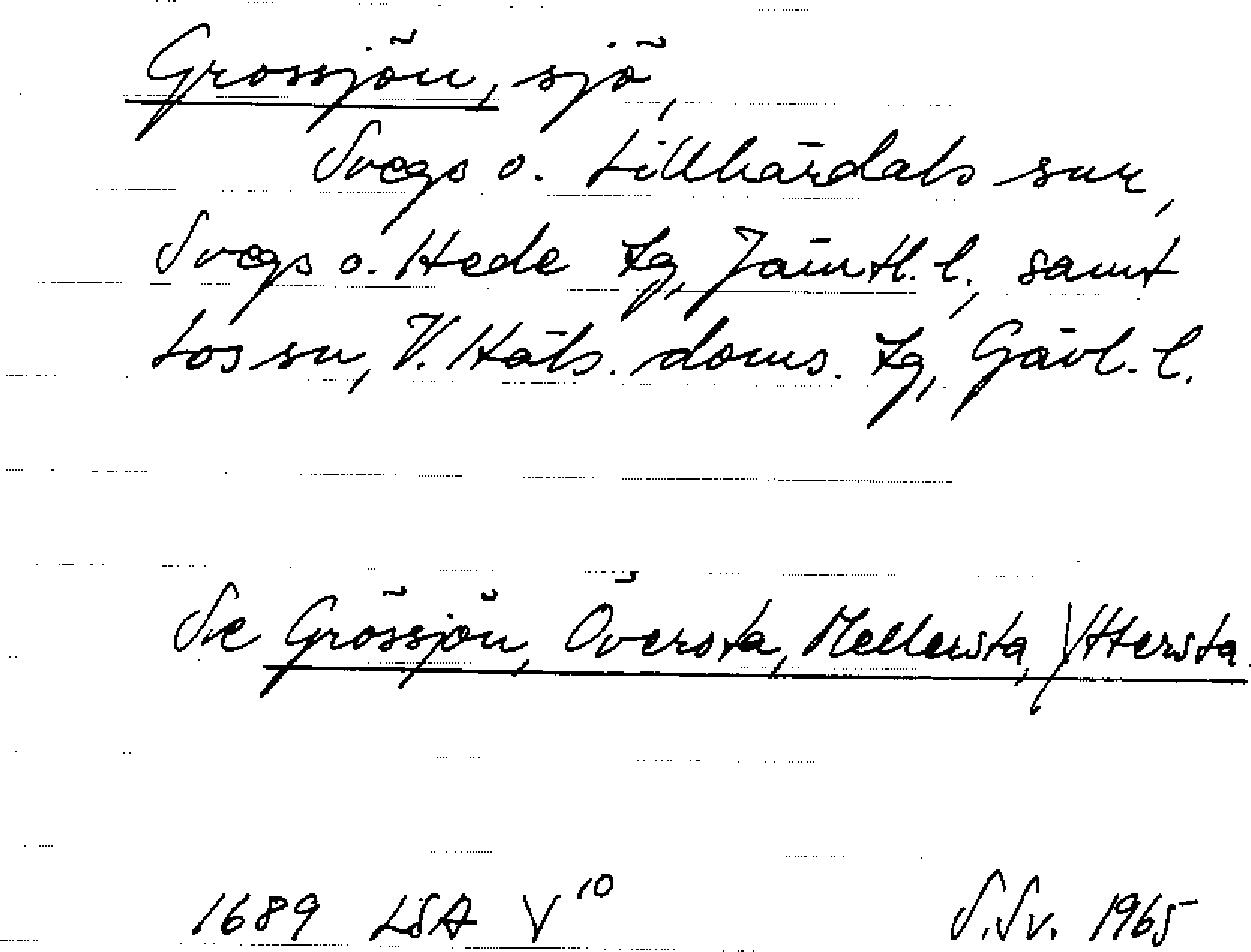 Grossjön, sjö,
Svegs o. Lillhärdals snr,
Svegs o. Hede tg, Jämtl. l., samt
Los sn, V. Häls. doms. tg, Gävl. l.
Se Grössjön, Översta, Mellersta, Yttersta.
1689 LSA V¹⁰ S.Sv. 1965